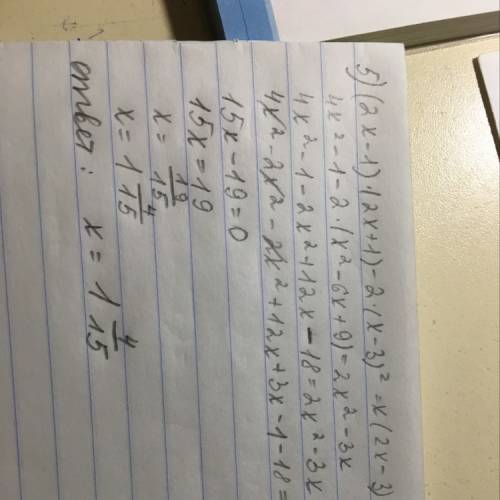 5) (2x-1)·(2x+1)-2·(x-3)² = x(2x-3)
4x²-1-2·(x²-6x+9) = 2x²-3x
4x²-1-2x²+12x-18 = 2x²-3x
4x²-2x²-2x²+12x+3x-1-18 =
15x-19=0
15x=19
x = 19/15
x = 1 4/15
ответ : x = 1 4/15